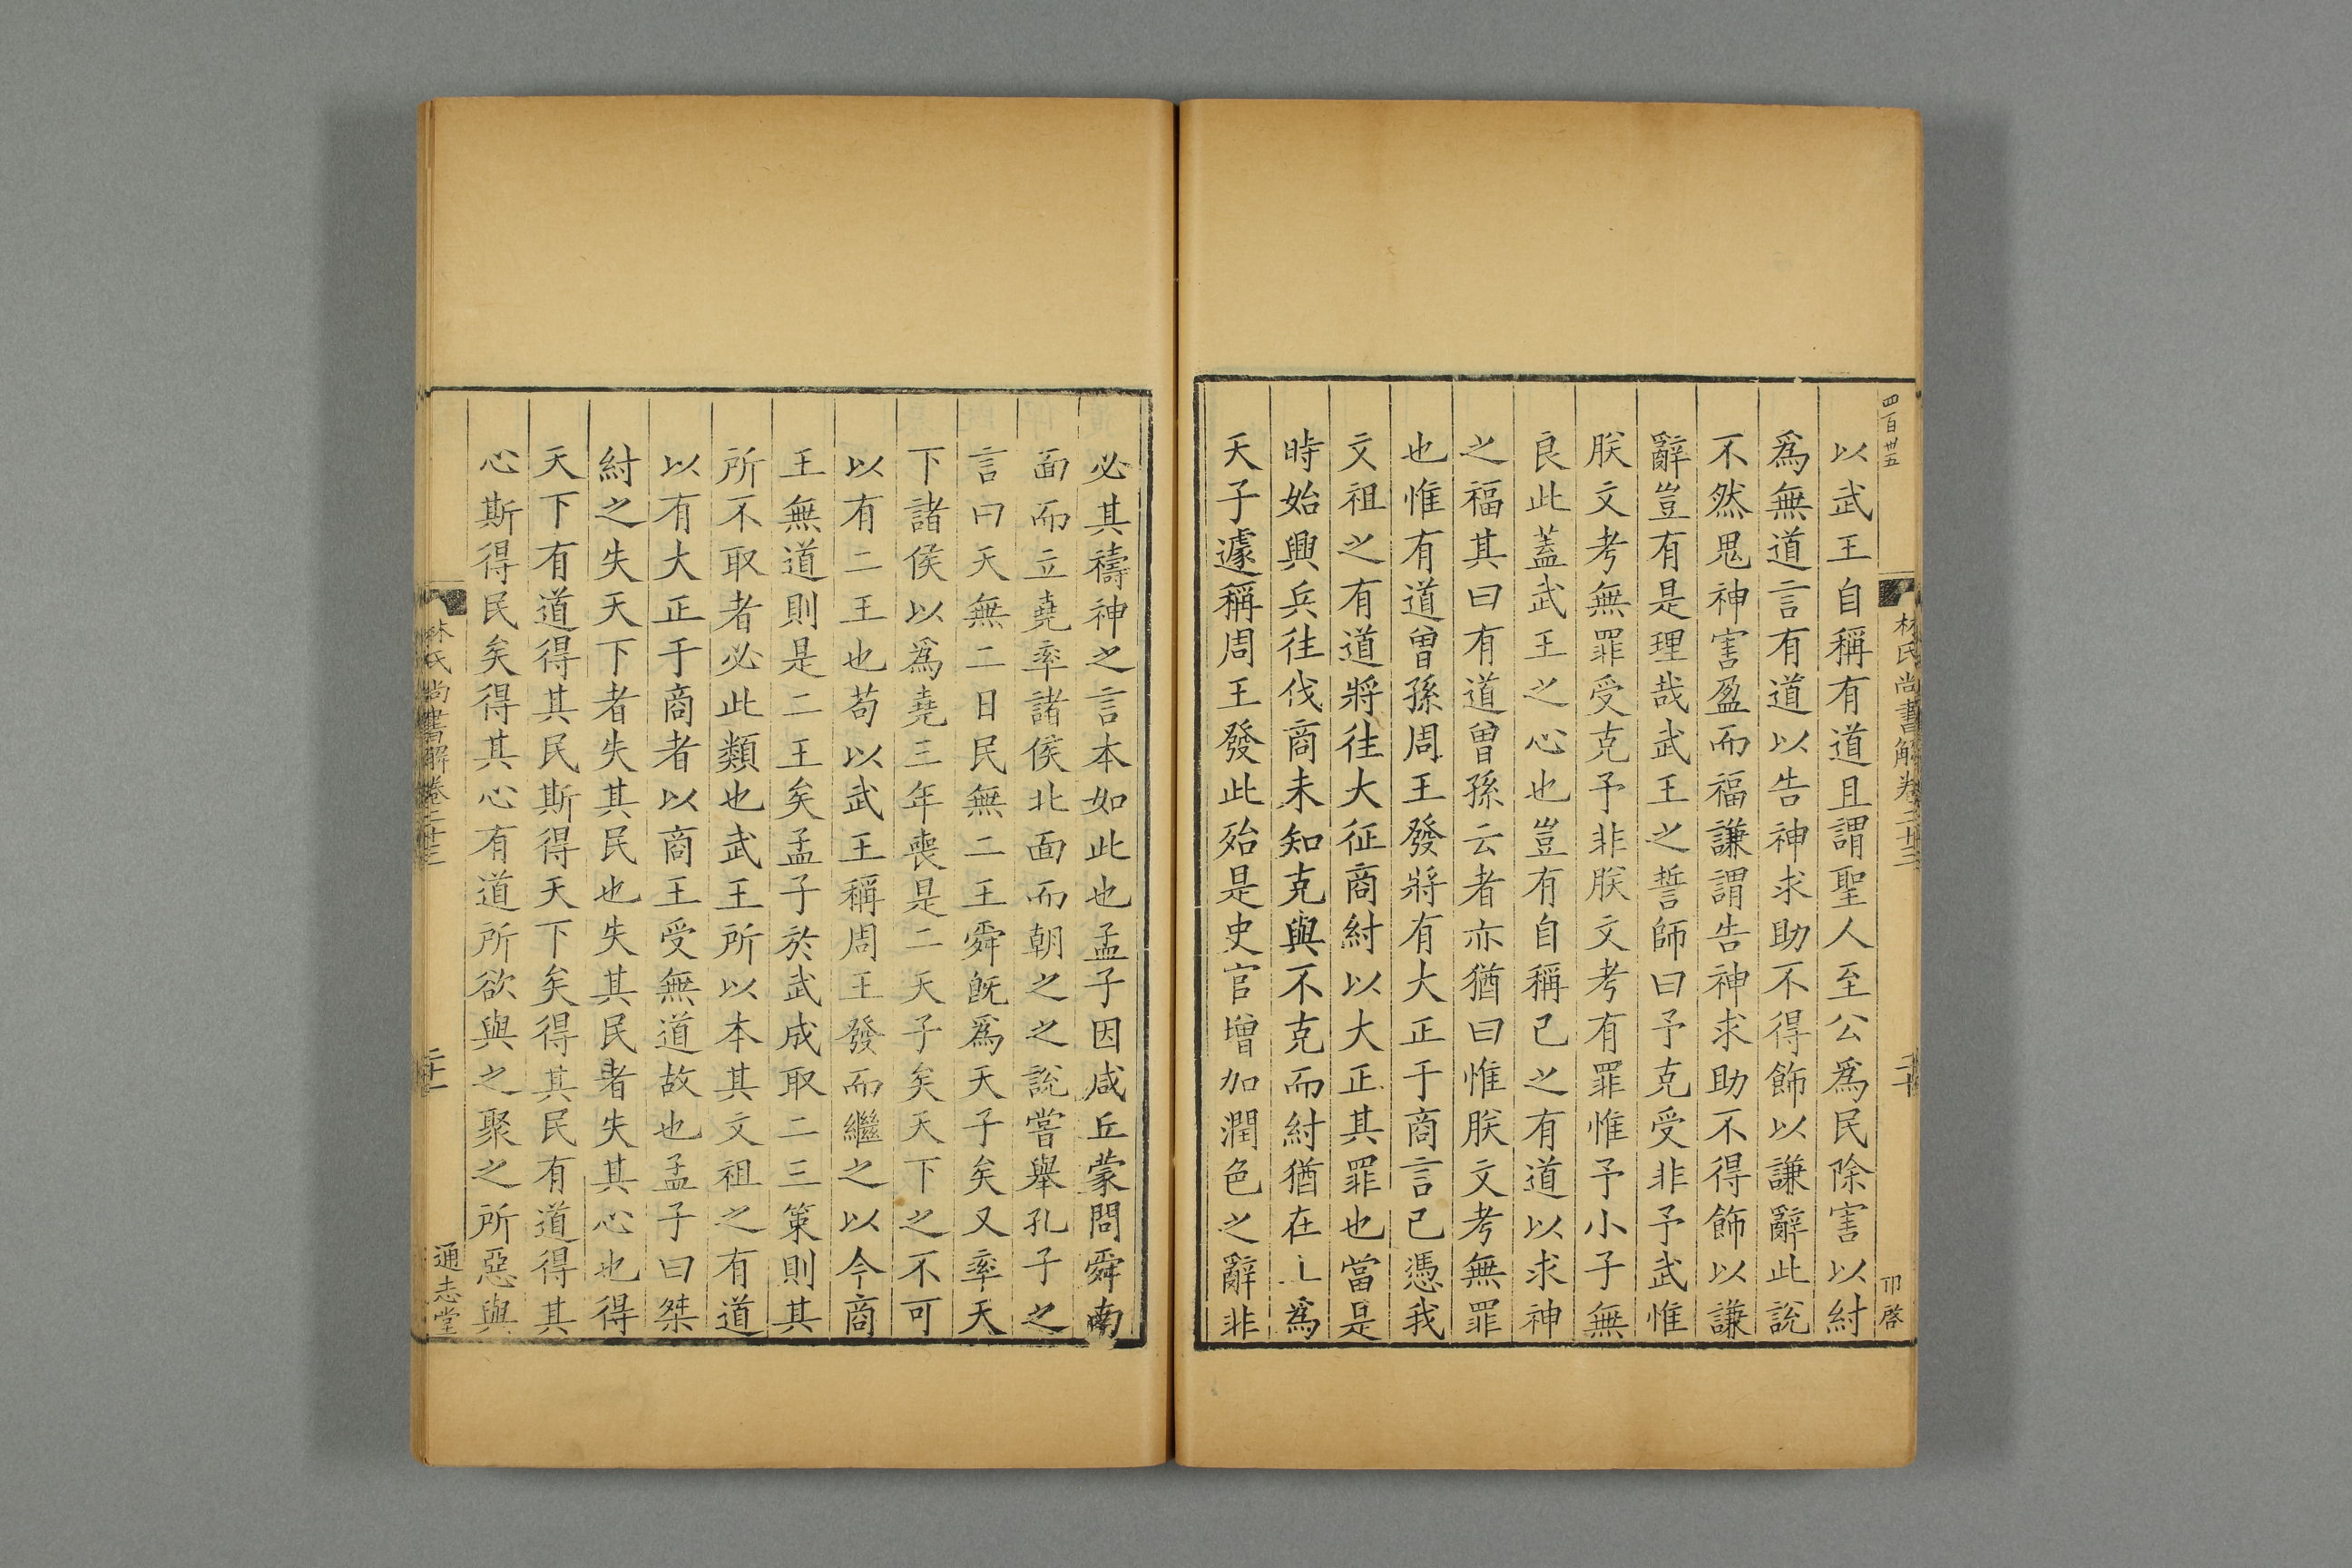 四百卅五
林氏尚書解卷二十三
二十
以武王自稱有道且謂聖人至公爲民除害以紂
爲無道言有道以告神求助不得飾以謙辭此說
不然鬼神害盈而福謙謂告神求助不得飾以謙
辭豈有是理哉武王之誓師曰予克受非予武惟
朕文考無罪受克予非朕文考有罪惟予小子無
良此蓋武王之心也豈有自稱己之有道以求神
之福其曰有道曾孫云者亦猶曰惟朕文考無罪
也惟有道曾孫周王發將有大正于商言己憑我
文祖之有道將往大征商紂以大正其罪也當是
時始興兵往伐商未知克與不克而紂猶在上爲
天子遽稱周王發此殆是史官增加潤色之辭非
必其禱神之言本如此也孟子因咸丘蒙問舜南
面而立堯率諸侯北面而朝之之說嘗舉孔子之
言曰天無二日民無二王舜旣爲天子矣又率天
下諸侯以爲堯三年喪是二天子矣天下之不可
以有二王也苟以武王稱周王發而繼之以今商
王無道則是二王矣孟子於武成取二三策則其
所不取者必此類也武王所以本其文祖之有道
以有大正于商者以商王受無道故也孟子曰桀
紂之失天下者失其民也失其民者失其心也得
天下有道得其民斯得天下矣得其民有道得其
心斯得民矣得其心有道所欲與之聚之所惡與
林氏尚書解卷二十三
二十一
通志堂